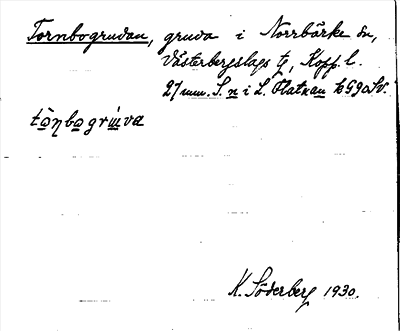 Tornbogrudan, gruva i Norrbärke sn,
Västerbergslags tg, Kopp. l.
27 mm. S. n i L. Flatnan to G9aSV.
tòṇbogrúva
K. Söderberg 1930.